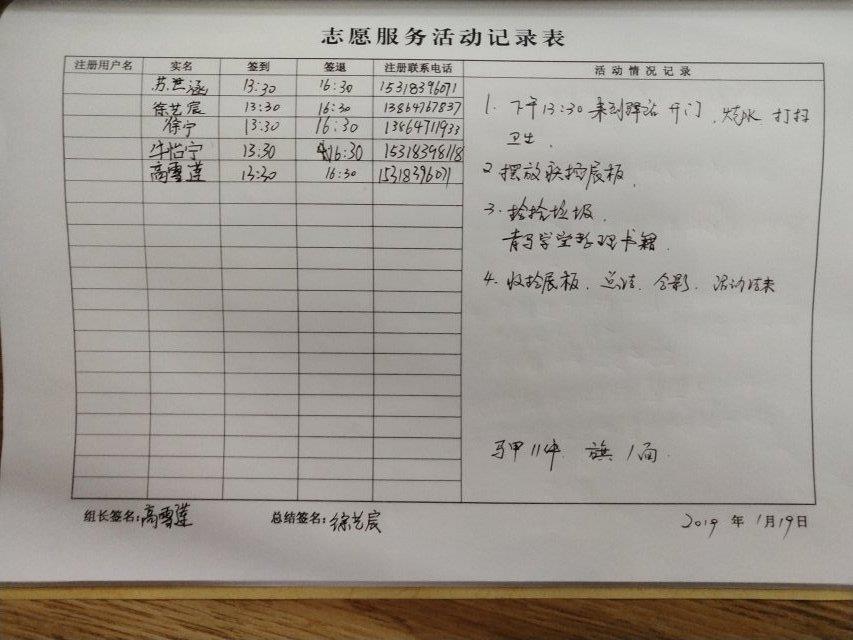 志愿服务活动记录表
注册用户名 实名 签到 签退 注册联系电话 活动情况记录
苏芸涵 13:30 16:30 15318396071
徐艺宸 13:30 16:30 13864767837
徐宁 13:30 16:30 13864711933
牛怡宁 13:30 16:30 15318398118
高雪莲 13:30 16:30 15318396071
1. 下午13:30来到驿站 开门、烧水 打扫
卫生.
2 摆放 展板.
3. 捡捡垃圾.
青马学堂整理书籍.
4. 收拾展板. 总结. 合影. 活动结束
马甲11件. 旗1面.
组长签名:高雪莲 总结签名:徐艺宸 2019 年 1月19日